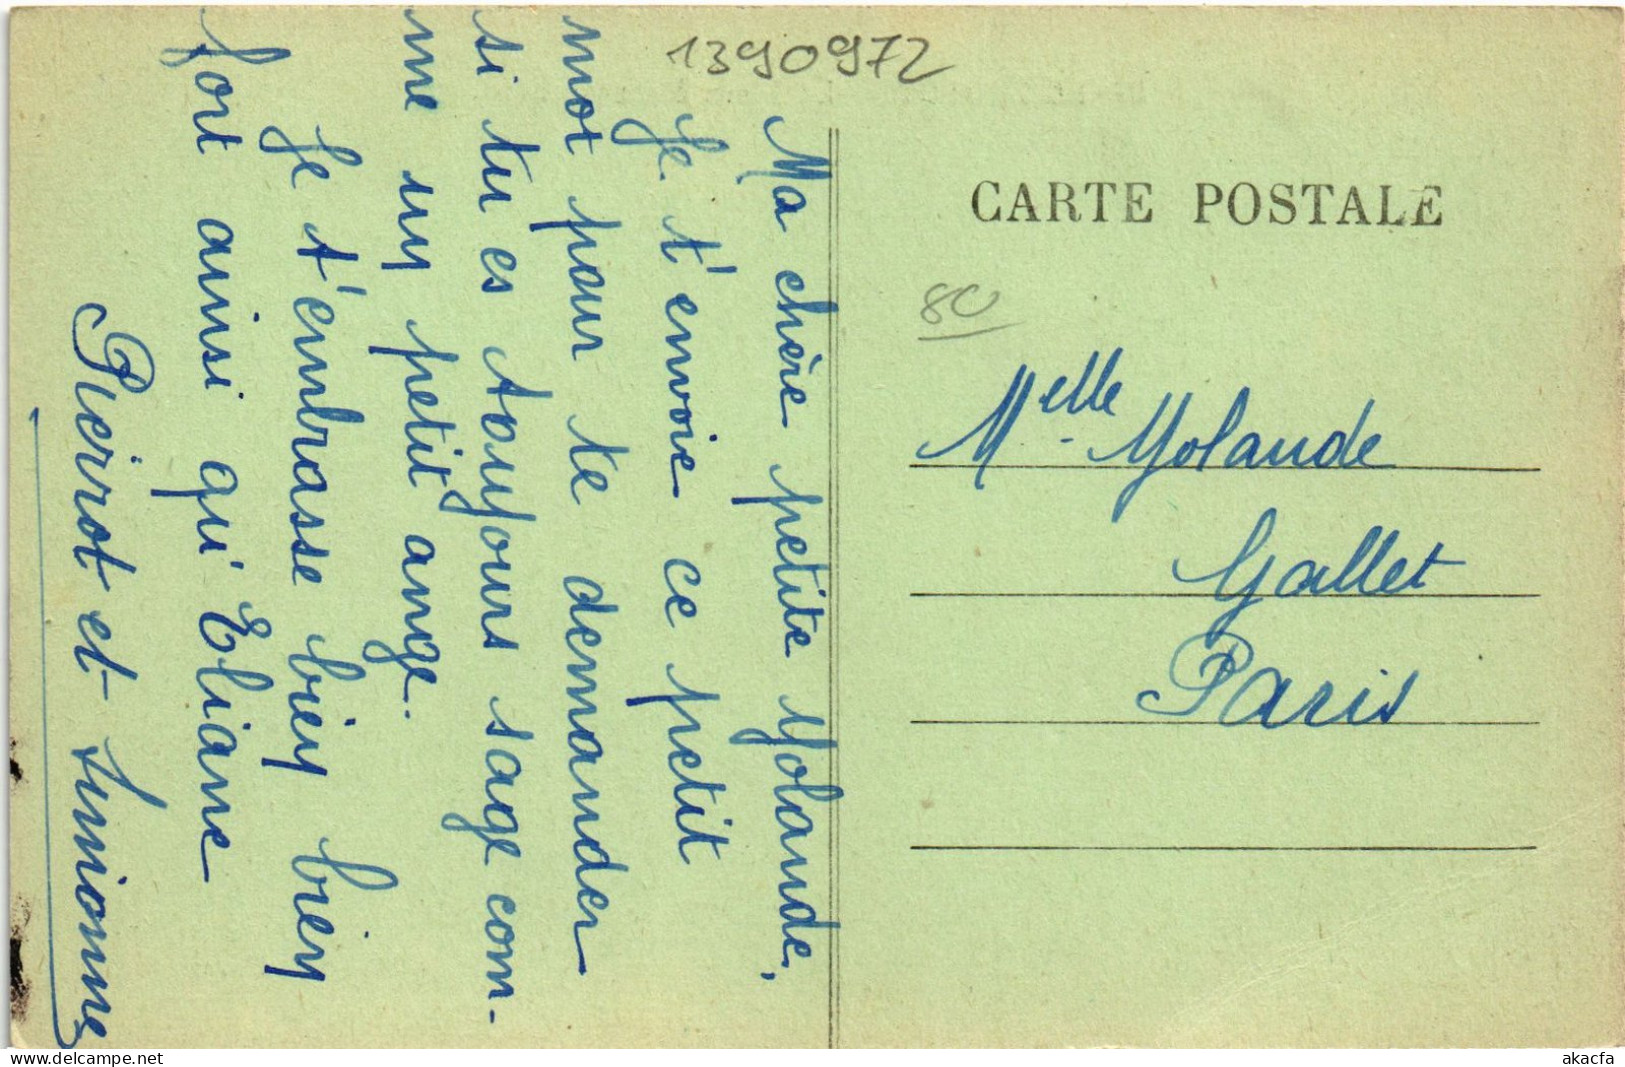 1390972
Ma chère petite Yolande,
Je t'envoie ce petit
mot pour te demander
si tu es toujours sage com-
me un petit ange.
Je t'embrasse bien bien
fort ainsi qu'Eliane
Pierrot et Simonne
CARTE POSTALE
80
Melle Yolande
Gallet
Paris
delcampe.net
akacfa